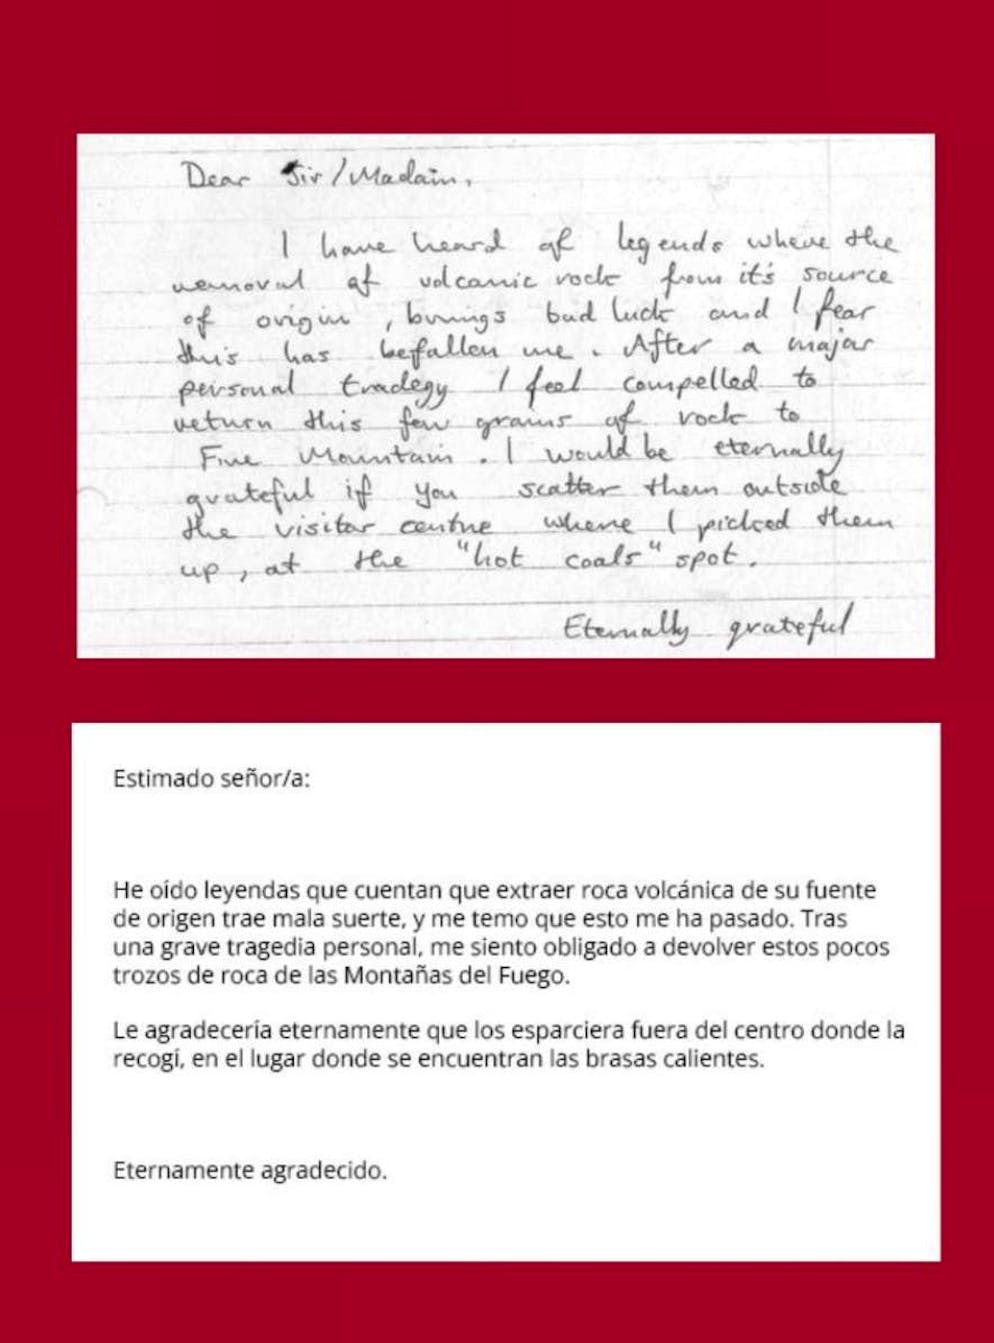 Dear Sir/Madam,
I have heard of legends where the
removal of volcanic rock from it's source
of origin, brings bad luck and I fear
this has befallen me. After a major
personal tradegy I feel compelled to
return this few grains of rock to
Fire Mountain. I would be eternally
grateful if you scatter them outside
the visitor centre where I picked them
up, at the "hot coals" spot.
Eternally grateful
Estimado señor/a:
He oído leyendas que cuentan que extraer roca volcánica de su fuente
de origen trae mala suerte, y me temo que esto me ha pasado. Tras
una grave tragedia personal, me siento obligado a devolver estos pocos
trozos de roca de las Montañas del Fuego.
Le agradecería eternamente que los esparciera fuera del centro donde la
recogí, en el lugar donde se encuentran las brasas calientes.
Eternamente agradecido.